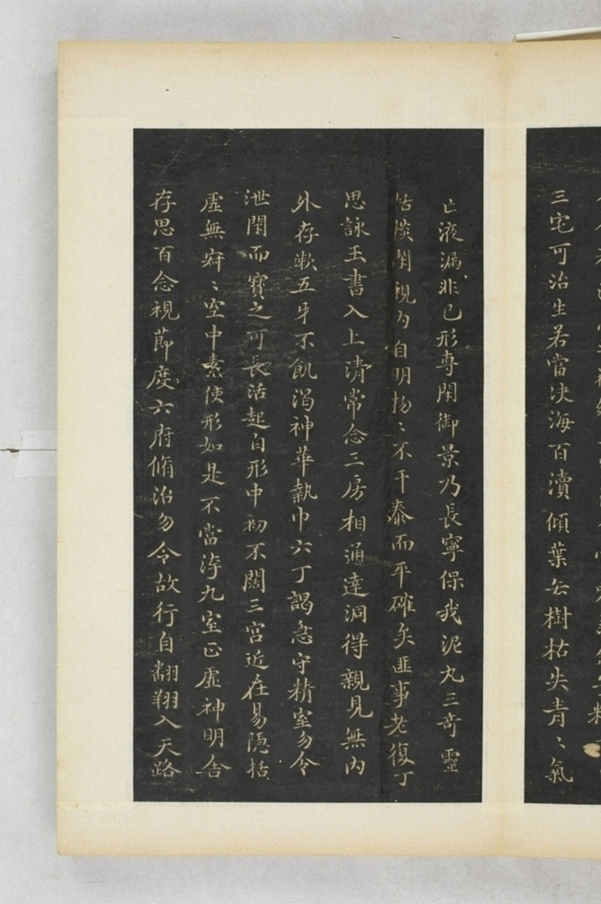 三宅可治生若當決海百瀆傾葉去樹枯失青〻氣
亡液漏非己形專閉御景乃長寧保我泥丸三奇靈
恬惔閉視內自明物〻不干泰而平確矣匪事老復丁
思詠玉書入上清常念三房相通達洞得視見無內
外存漱五牙不飢渴神華執巾六丁謁急守精室勿令
泄閉而寶之可長活起自形中初不闊三宮近在易隱括
虛無寂〻空中素使形如是不當汙九室正虛神明舍
存思百念視節度六府脩治勿令故行自翱翔入天路